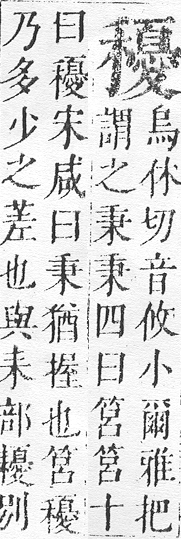 烏休切音攸小爾雅把
謂之秉秉四曰筥筥十
曰宋咸曰秉猶握也筥
乃多少之差也與耒部耰別